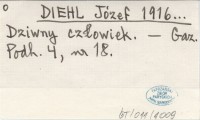 DIEHL Józef 1916...
Dziwny człowiek. — Gaz.
Podh. 4, nr 18.